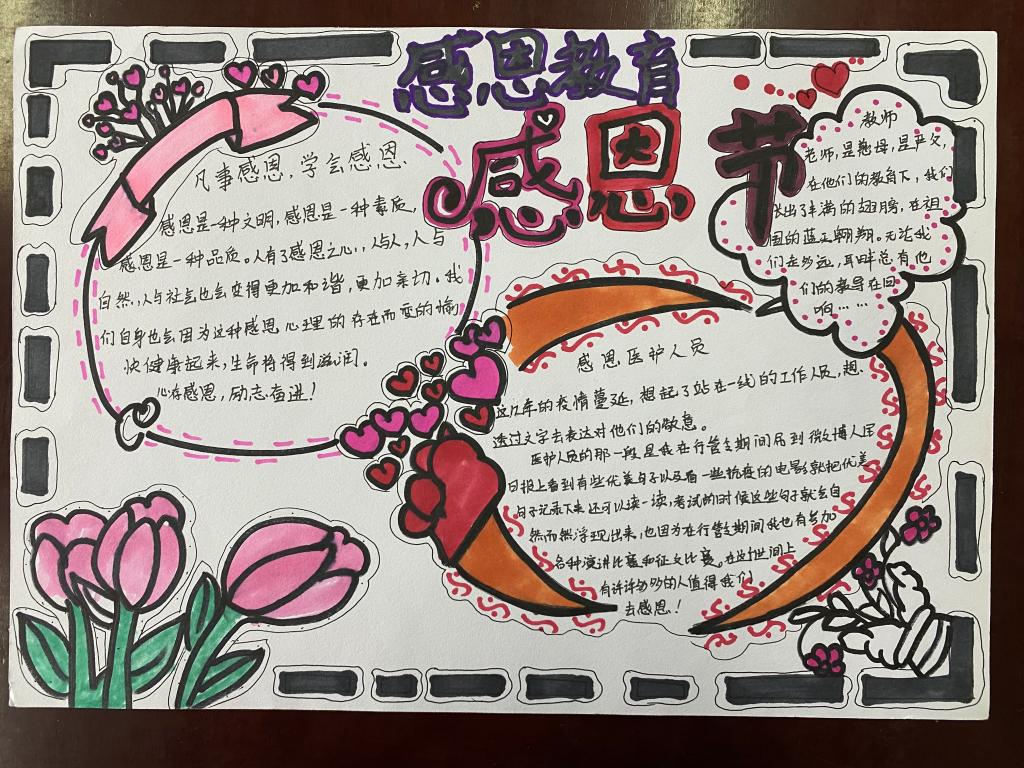 感恩教育
感恩节
凡事感恩，学会感恩
感恩是一种文明，感恩是一种素质，
感恩是一种品质。人有了感恩之心，人与人，人与
自然，人与社会也会变得更加和谐，更加亲切。我
们自身也会因为这种感恩心理的存在而变的愉
快健康起来，生命将得到滋润。
心存感恩，励志奋进！
教师
老师，是慈母，是严父，
在他们的教育下，我们
长出了丰满的翅膀，在祖
国的蓝天翱翔。无论我
们走多远，耳畔总有他
们的教导在回
响……
感恩医护人员
这几年的疫情蔓延，想起了站在一线的工作人员，想
透过文字去表达对他们的敬意。
医护人员的那一段是我在行管专期间居到微博人民
日报上看到有些优美句子以及看一些抗疫的电影就把优美
句子记录下来还可以读一读，考试的时候这些句子就会自
然而然浮现出来，也因为在行管专期间我也有参加
各种演讲比赛和征文比赛。在这世间上
有许许多多的人值得我们
去感恩！